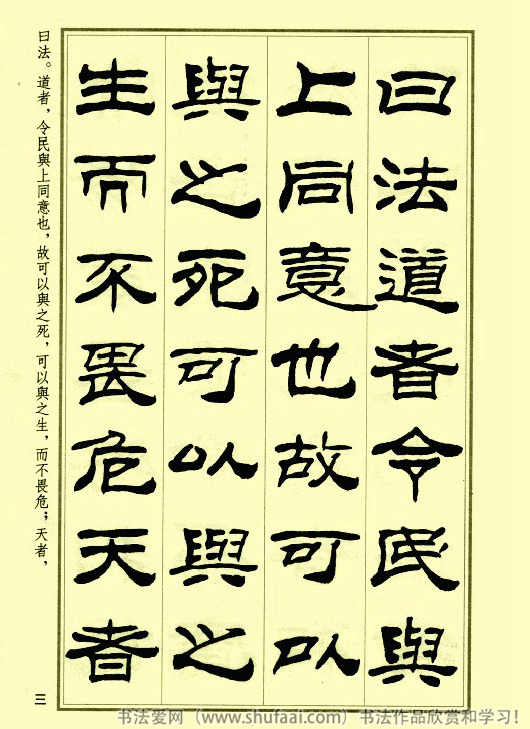 曰法道者令民與
上同意也故可以
與之死可以與之
生而不畏危天者
曰法。道者，令民與上同意也，故可以與之死，可以與之生，而不畏危；天者，
三
书法爱网（www.shufaai.com）书法作品欣赏和学习！